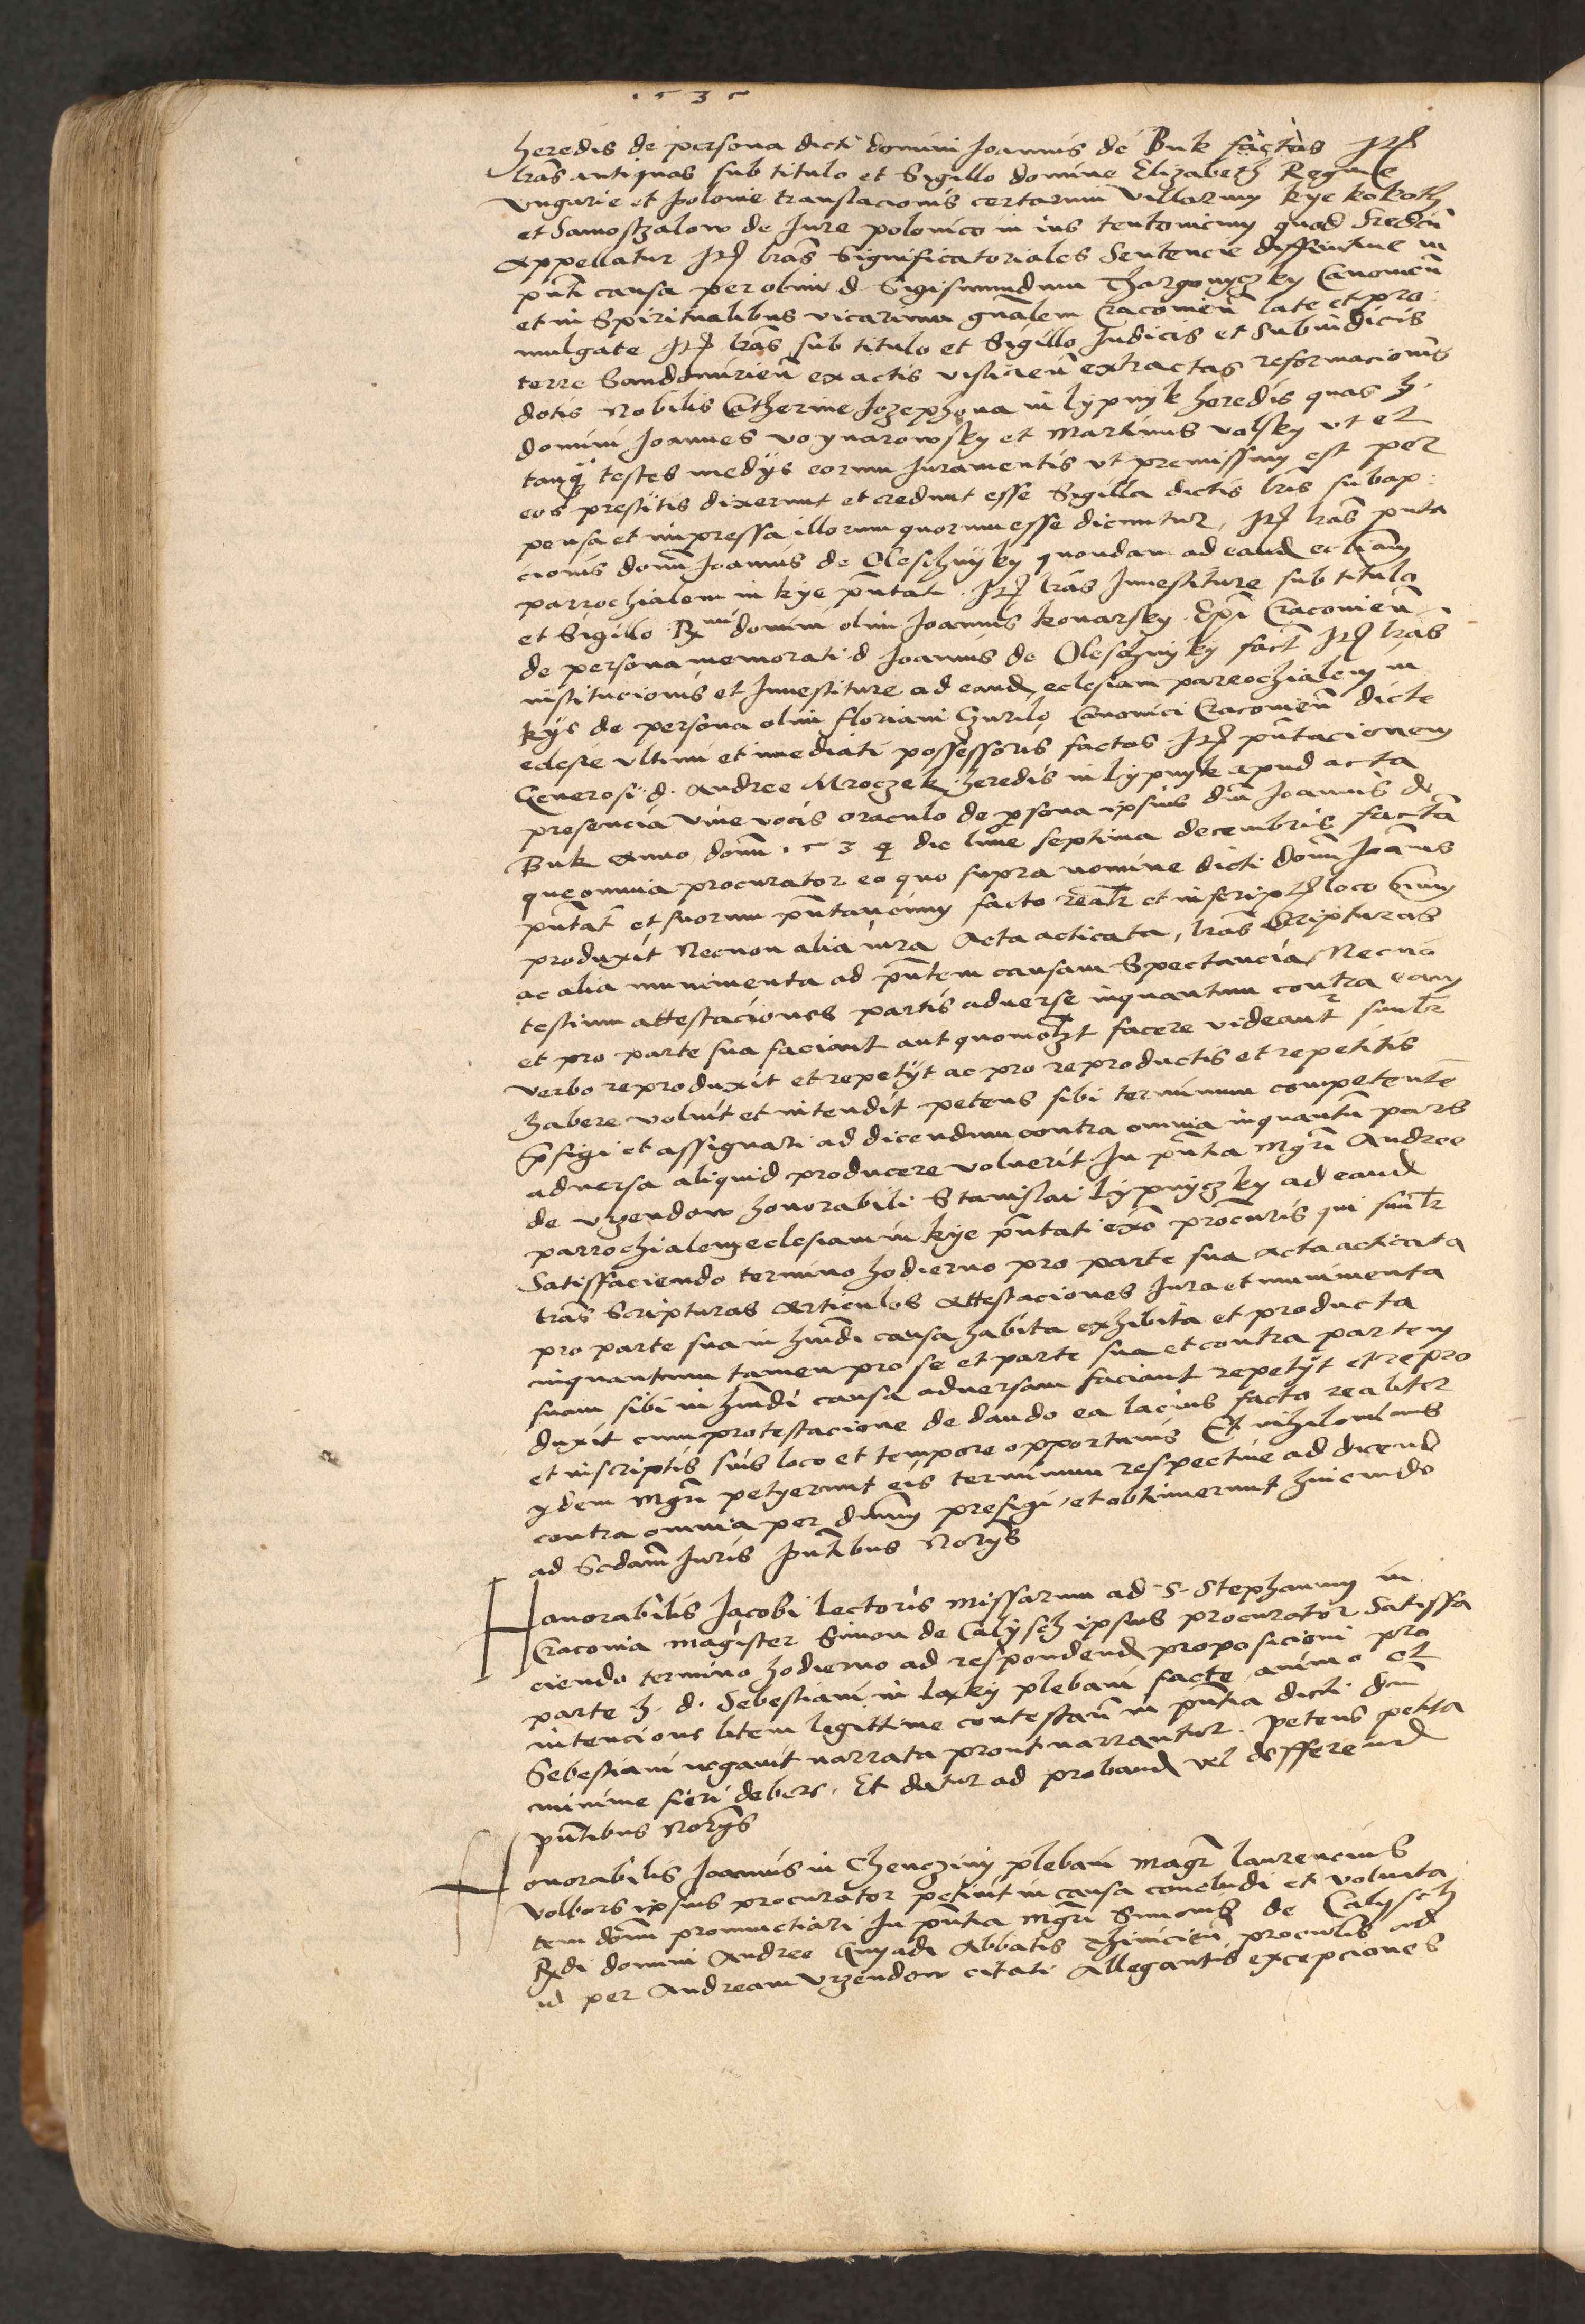 1535
heredis de persona dicti domini Joannis de Buk factas Itẽ
lrãs antiquas sub titulo et Sigillo domine Elizabeth Regine
Vngarie et Polonie translacionis certarum villarum kye kokoth
et Samostzalow de Jure polonico in ius teutonicum quod Sredeñ
Appellatur Itẽ lrãs Significatoriales Sentencie diffinitiue in
pñti causa per olim d Sigismundum Thargowyczky Canonicũ
et in Spiritualibus vicarium gñalem Cracovieñ late et pro:
mulgate Itẽ lrãs sub titulo et Sigillo Judicis et Subiudicis
terre Sandomirieñ ex actis visliciẽñ extractas reformacionis
dotis Nobilis Catherine Jozephowa in lypnyk heredis quas h.
domini Joannes voynarowsky et Martinus volsky vt et
tanq̃ testes medys eorum Juramentis vt premissum est per
eos prestitis dixerunt et credunt esse Sigilla dictis lris subap:
pensa et impressa illorum quorum esse dicuntur, Itẽ lrãs pñta
cionis domĩ Joannis de Oleschnyky quondam ad eand eccliam
parrochialem in kye pñtati. Itẽ lrãs Jnuestiture sub titulo
et Sigillo Rmi domini olim Joannis konarsky Epĩ Cracovieñ
de persona memorati d Joannis de Oleschnyky fact Itẽ lrãs
institucionis et Jnuestiture ad eand eclesiam parrochialem in
kye de persona olim floriani Czurilo Canonici Cracovieñ dicte
eclesie vltimi et immediati possessoris factas Itẽ pñtacionem
Generosi d. Andree Mroczek heredis in lypnyk apud acta
presencia viue vocis oraculo de psona ipsius dñi Joannis de
Buk Anno domĩ 1534 die lune septima decembris factã
que omnia procurator eo quo supra nomine dicti domĩ Joãnis
pñtati et suorum pñtancium facto realr et inscriptẽ loco
produxit Necnon alia iura Acta acticata, lrãs Scripturas
ac alia munimenta ad pñtem causam Spectancia, Necnõ
testium attestaciones partis aduerse inquantum contra eam
et pro parte sua faciant aut quomolzt facere videantr similr
verbo reproduxit et repetyt ac pro reproductis et repetitis
habere voluit et intendit petens sibi terminum competentẽ
p̃figi et assignari ad dicendum contra omnia inquantũ pars
aduersa aliquid producere voluerit. In pñtia Mgri Andree
de vrzendow honorabili Stanislai lypnyczky ad eand
parrochialem eclesiam in kye pñtati exõ procuris qui similr
Satisfaciendo termino hodierno pro parte sua Acta acticata
lrãs Scripturas Articulos Attestaciones Jura et munimenta
pro parte sua in hmõi causa habita exhibita et producta
inquantum tamen pro se et parte sua et contra partem
suam sibi in hmõi causa aduersam faciant repetyt et repro
duxit cum protestacione de dando ea lacius facto realiter
et inscriptis suis loco et tempore opportunis Et nihilominus
ydem Mgri petyerunt eis terminum respectiue ad dicend
contra omnia per dnum prefigi, et obtinuerunt hincinde
ad Scdam Juris pñtibus Norys
Honorabilis Jacobi lectoris missarum ad S. Stephanum in
Cracouia Magister Simon de Calysch ipsius procurator Satisfa
ciendo termino hodierno ad respondend proposicioni pro
parte h. d. Sebestiani in laxky plebani facte animo et
intencione litem legittime contestañ in pñtia dicti dñi
Sebestiani negauit narrata prout narrantur. Petens petita
minime fieri debere. Et datur ad proband vel defferend
pñtibus Norys
Honorabilis Joannis in Chenczyny plebani Magr laurencius
volbors ipsius procurator petiuit in causa concludi et voluita
tem dñm pronunctiari. In pñtia Mgri Simonis de Calysch
Rdi domini Andree Gnyadi Abbatis Thinecieñ procuris ad
id per Andream vrzendow citati Allegantis excepciones